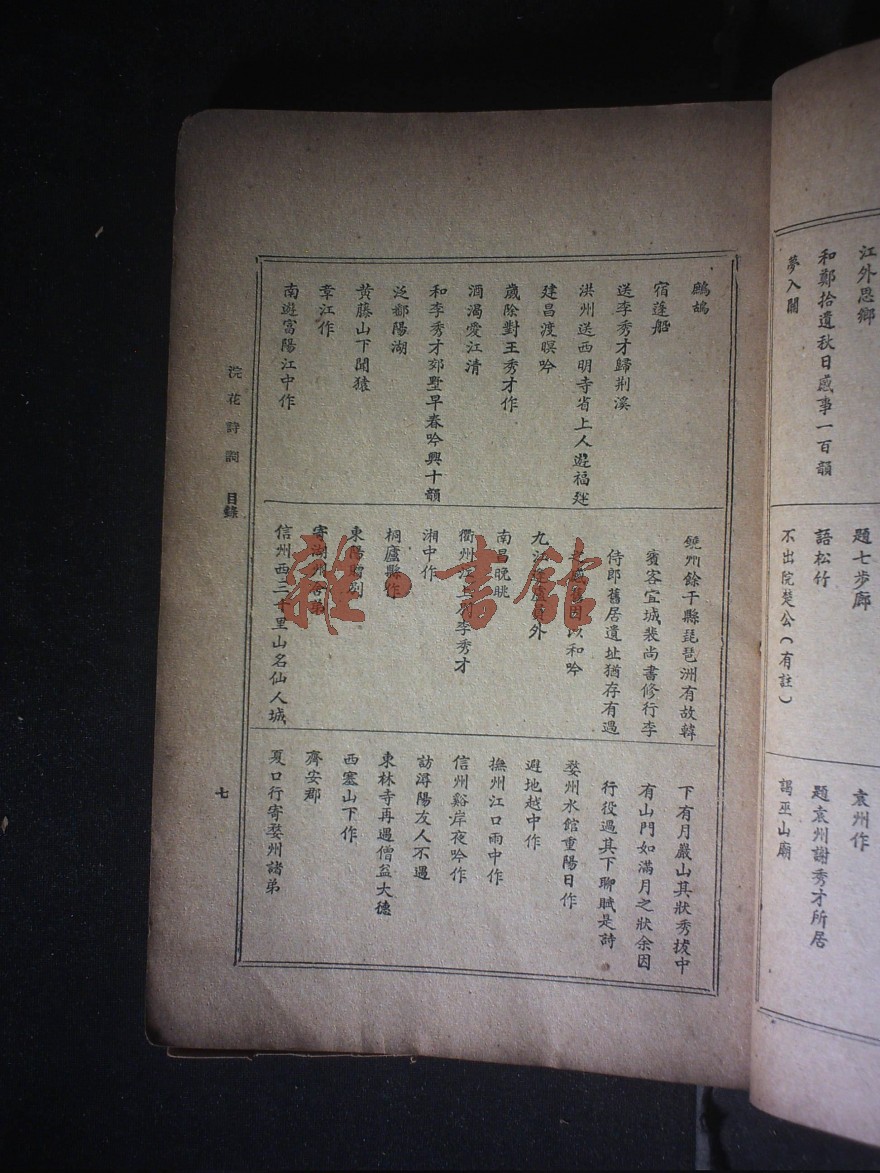 江外思鄉
和鄭拾遺秋日感事一百韻
夢入關
題七步廊
語松竹
不出院楚公(有註)
袁州作
題袁州謝秀才所居
謁巫山廟
鷓鴣
宿蓬船
送李秀才歸荆溪
洪州送西明寺省上人遊福建
建昌渡暝吟
歲除對王秀才作
酒渴愛江清
和李秀才郊墅早春吟興十韻
泛鄱陽湖
黃藤山下聞猿
章江作
南遊富陽江中作
饒州餘干縣琵琶洲有故韓
賓客宣城裴尚書修行李
侍郎舊居遺址猶存有遇
以和吟
九江 外
南昌晚眺
衢州江上别李秀才
湘中作
桐廬縣作
東陽
寄湖州舍弟
信州西三十里山名仙人城
下有月巖山其狀秀拔中
有山門如滿月之狀余因
行役過其下聊賦是詩
婺州水館重陽日作
避地越中作
撫州江口雨中作
信州谿岸夜吟作
訪潯陽友人不遇
東林寺再遇僧益大德
西塞山下作
齊安郡
夏口行寄婺州諸弟
浣花詩詞 目錄
七
雜·書館